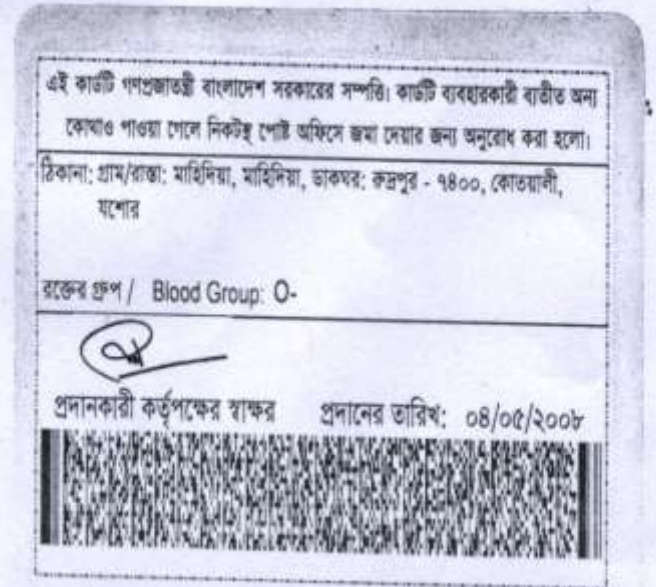 এই কার্ডটি গণপ্রজাতন্ত্রী বাংলাদেশ সরকারের সম্পত্তি। কার্ডটি ব্যবহারকারী ব্যতীত অন্য
কোথাও পাওয়া গেলে নিকটস্থ পোষ্ট অফিসে জমা দেয়ার জন্য অনুরোধ করা হলো।
ঠিকানা: গ্রাম/রাস্তা: মাহিদিয়া, মাহিদিয়া, ডাকঘর: রুদ্রপুর - ৭৪০০, কোতয়ালী,
যশোর
রক্তের গ্রুপ / Blood Group: O-
প্রদানকারী কর্তৃপক্ষের স্বাক্ষর প্রদানের তারিখ: ০৪/০৫/২০০৮